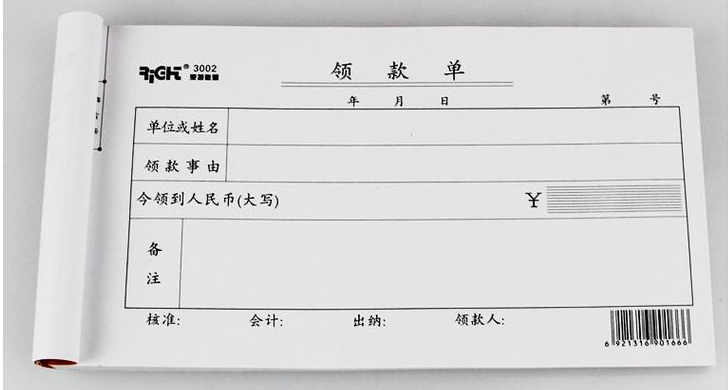 RiGHT® 3002
领 款 单
年 月 日 第 号
单位或姓名
领款事由
今领到人民币(大写) ¥
备
注
核准: 会计: 出纳: 领款人:
6 921316 901666